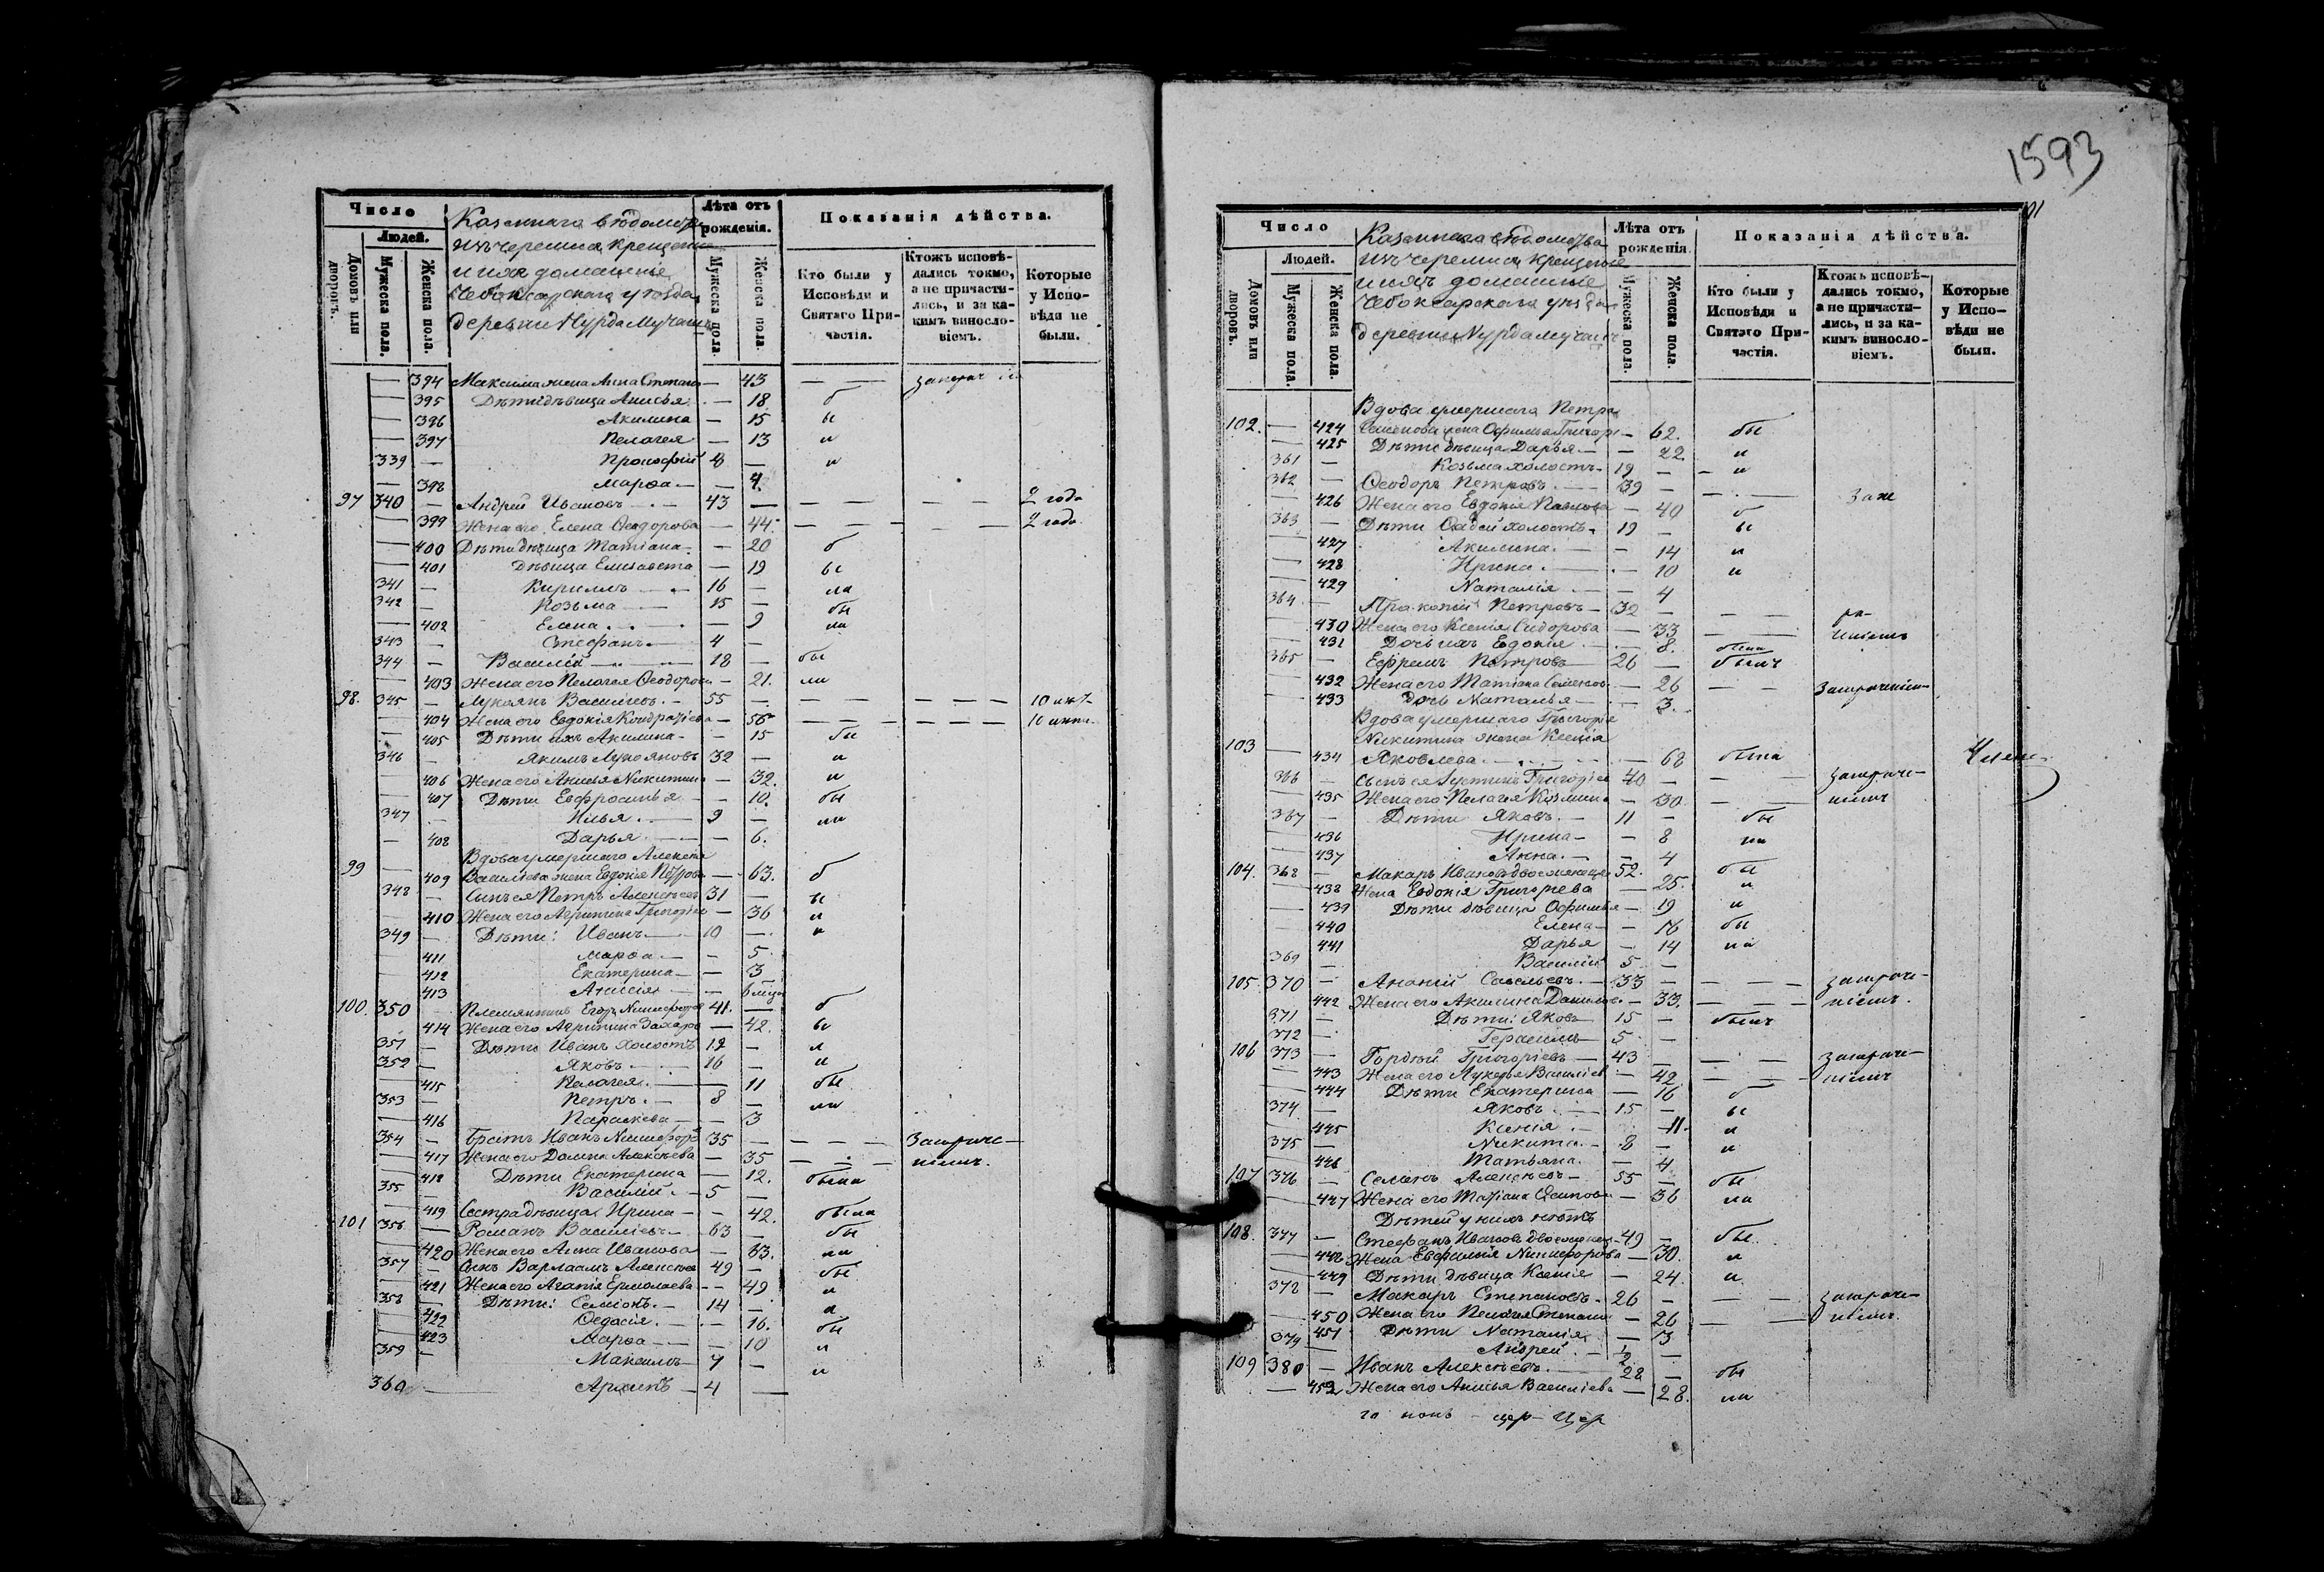 1593
Число
Людей.
Домовъ или дворовъ.
Мужеска пола.
Женска пола.
Казеннаго вѣдомства
изъ черемисъ крещенные
и ихъ домашніе
Чебоксарскаго уѣзда
деревни Нурда Мучашъ
Лѣта отъ рожденія.
Мужеска пола.
Женска пола.
Показанія дѣйства.
Кто были у Исповѣди и Святаго Причастія.
Ктожъ исповѣдались токмо, а не причастились, и за какимъ винословіемъ.
Которые у Исповѣди не были.
— 394 Максима жена Анна Степано — 43 — —
— 395 Дѣти дѣвица Анисья — 18 б
— 396 Акилина — 15 ы
— 397 Пелагея — 13 и
339 — Прокофій 8 — и
— 398 Марѳа — — 4.
97 340 — Андрей Ивановъ — 43 — — — — — 2 года
— 399 Жена его Елена Ѳеодорова — 44 — — — — 2 года
— 400 Дѣти дѣвица Татіана — 20 б
— 401 Дѣвица Елисавета — 19 ы
341 — Кириллъ — 16 — ла
342 — Козьма — 15 — бы
— 402 Елена — — 9 ли
343 — Стефанъ — 4 —
344 — Василій — 18 — бы
— 403 Жена его Пелагея Ѳеодорова — 21. ли
98. 345 — Лукоянъ Василіевъ — 55 — — — — — —
— 404 Жена его Евдокія Кондратіева — 56 — — — — — —
— 405 Дѣти ихъ Акилина — — 15 бы
346 — Якимъ Лукояновъ 32 — и
— 406 Жена его Анисья Никитина — 32. и
— 407 Дѣти Евфросинья — — 10. бы
347 — Илья — 9 — ли
— 408 Дарья — — 6.
Вдова умершаго Алексѣя
99 — 409 Василіева жена Евдокія Петрова — 63. б
348 — Сынъ ея Петръ Алексѣевъ 31 — ы
— 410 Жена его Агрипина Григорьев — 36 и
349 — Дѣти: Иванъ — 10 — и
— 411 Марѳа — — 5
— 412 Екатерина — — 3
— 413 Анисія — —
100. 350 — Племянникъ Егоръ Никифоровъ 41. — б
— 414 Жена его Агрипина Захаров — 42. ы
351 — Дѣти Иванъ холостъ 19 — л
352 — Яковъ — 16 — и
— 415 Пелагея — — 11 бы
353 — Петръ — 8 — ли
— 416 Параскева — — 3
354 — Братъ Иванъ Никифоров 35 — — — — Заотраче-
— 417 Жена его Домна Алексѣева — 35 — — — ніемъ.
— 418 Дѣти Екатерина — 12. была
355 — Василій — 5 —
— 419 Сестра дѣвица Ирина — — 42. была
101 356 — Романъ Василіевъ — 63 — бы
— 420 Жена его Анна Иванова — 63. ли
357 — Сынъ Варлаамъ Алексѣев 49 — бы
— 421 Жена его Агапія Ермолаева — 49 и
358 — Дѣти: Семіонъ — 14 — л
— 422 Ѳедосія — — 16. бы
— 423 Марѳа — — 10 и
359 — Максимъ — 7 — и
360 — Архипъ — 4 —
Число
Людей.
Домовъ или дворовъ.
Мужеска пола.
Женска пола.
Казеннаго вѣдомства
изъ черемисъ крещеные
и ихъ домашніе
Чебоксарскаго уѣзда
деревни Нурдамучашъ
Лѣта отъ рожденія.
Мужеска пола.
Женска пола.
Показанія дѣйства.
Кто были у Исповѣди и Святаго Причастія.
Ктожъ исповѣдались токмо, а не причастились, и за какимъ винословіемъ.
Которые у Исповѣди не были.
Вдова умершаго Петра
102. — 424 Семенова жена Офимья Григор — 62. бы
— 425 Дѣти дѣвица Дарья — — 22 и
361 — Козьма холостъ — 19 — и
362 — Ѳеодоръ Петровъ — 39 —
— 426 Жена его Евдокія Павлова — 40 б
363 — Дѣти Ѳадей холостъ 19 — ы
— 427 Акилина — — 14 и
— 428 Ирина — — 10 и
— 429 Наталія — — 4
364 — Прокопій Петровъ — 32 — — —
— 430 Жена его Ксенія Сидорова — 33 — — ніемъ
— 431 Дочь ихъ Евдокія — — 8. была
365 — Ефремъ Петровъ 26 — былъ
— 432 Жена его Татіана Семенов — 26 — —
— 433 Дочь Наталья — — 3.
Вдова умершаго Григорія
Никитина жена Ксенія
103 — 434 Яковлева — — 68 была
366 — Сынъ ея Григорьев 40 — — — заотраче-
— 435 Жена его Пелагея Козмина — 30. — — ніемъ
367 — Дѣти Яковъ — 11 — бы
— 436 Ирина — — 8 ли
— 437 Анна — — 4
104. 368 — Макаръ Ивановъ двоеженецъ 52. бы
— 438 Жена Евдокія Григорьева — 25. и
— 439 Дѣти дѣвица Офимья — 19 и
— 440 Елена — — 16 бы
— 441 Дарья — 14 ли
369 — Василій 5 —
105 370 — Ананій Савельевъ — 33 — — — — заотраче-
— 442 Жена его Акилина Данилов — 33. — — — ніемъ.
371 — Дѣти: Яковъ 15 — былъ
372 — Герасимъ 5 —
106 373 — Гордѣй Григоріевъ — 43 — — — заотраче-
— 443 Жена его Лукерья Василіев — 42 — — — ніемъ
— 444 Дѣти Екатерина — 16 б
374 — Яковъ — 15 — ы
— 445 Ксенія — — 11. и
375 — Никита — 8 — и
— 446 Татьяна — — 4
107 376 — Семенъ Алексѣевъ — 55 — бы
— 447 Жена его Татіана Осипова — 36 ли
Дѣтей у нихъ нѣтъ
108. 377 — Стефанъ Ивановъ двоеженец 49 — бы.
— 448 Жена Евфимія Никифорова — 30. и
— 449 Дѣти дѣвица Ксенія — 24. и
378 — Макаръ Степановъ — 26 — — — заотраче-
— 450 Жена его Пелагея Степанов — 26 — — ніемъ.
— 451 Дѣти Наталія — 3
379 — Андрей — ½ —
109 380 — Иванъ Алексѣевъ — 28 — бы
— 452 Жена его Анисья Василіева — 28. ли